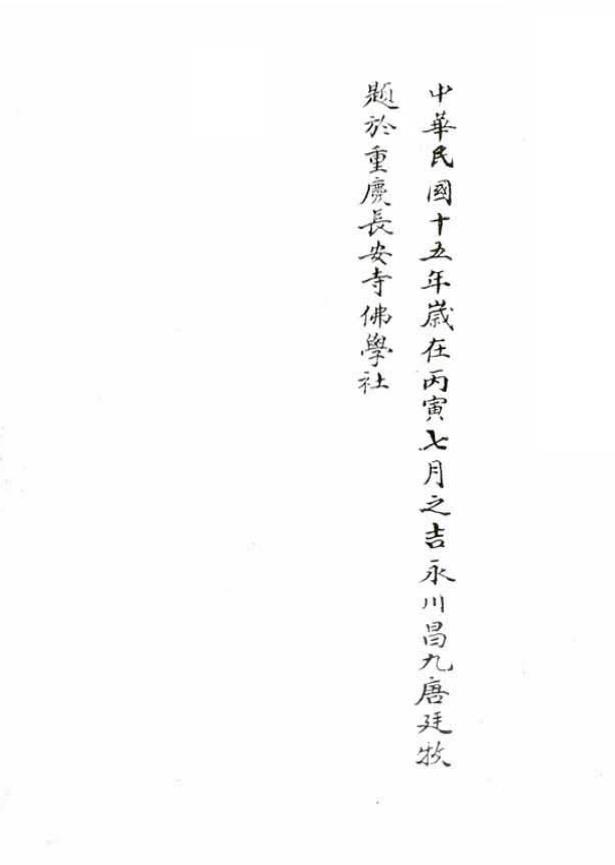 中華民國十五年歲在丙寅七月之吉永川昌九唐廷牧
題於重慶長安寺佛學社